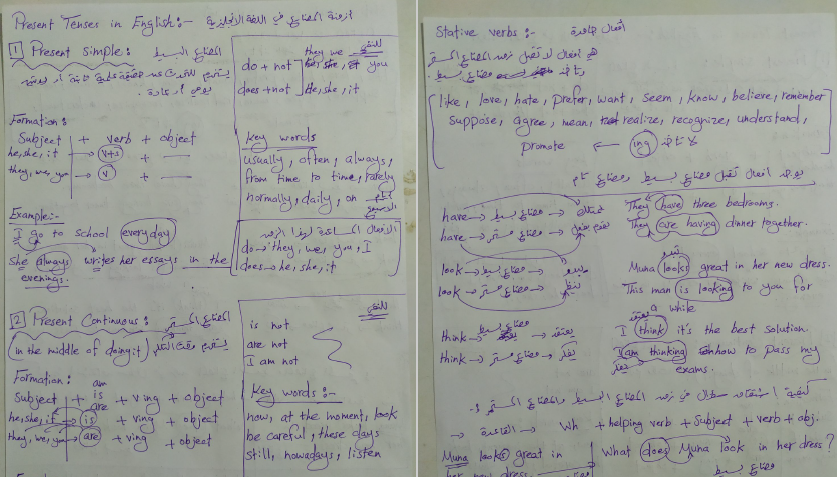 Present Tenses in English:- أزمنة المضارع في اللغة الإنجليزية
1 Present simple: المضارع البسيط
يستخدم للتحدث عن حقيقة علمية ثابتة أو
يومي أو عادة.
Formation:
Subject + verb + object
he, she, it → v+s +
they, we, you → v +
Example:-
I go to school everyday
She always writes her essays in the
evenings.
للنفي
they we you
do + not
does + not he, she, it
Key words
usually, often, always,
from time to time, rarely
normally, daily, on
الأفعال المساعدة لهذا الزمن
do → they, we, you, I
does → he, she, it
2 Present Continuous: المضارع المستمر
(in the middle of doing it) يستخدم وقت
Formation:
am
is
are
Subject + + ving + object
he, she, it → is + ving + object
they, we, you → are + ving + object
للنفي
is not
are not
I am not
Key words:-
now, at the moment, look
be careful, these days
still, nowadays, listen
Stative verbs: أفعال جامدة
هي أفعال لا تقبل زمن المضارع المستمر
مضارع بسيط.
like, love, hate, prefer, want, seem, know, believe, remember
suppose, agree, mean, realize, recognize, understand,
promote ← ing لا تأخذ
يوجد أفعال تقبل مضارع بسيط ومضارع تام
have → مضارع بسيط They have three bedrooms.
have → مضارع مستمر They are having dinner together.
تبدو
look → مضارع بسيط → Muna looks great in her new dress.
look → مضارع مستمر → ينظر This man is looking to you for
a while
think → مضارع بسيط → يعتقد I think it's the best solution.
think → مضارع مستمر → يفكر I am thinking how to pass my
exams.
كيفية اشتقاق سؤال في زمن المضارع البسيط والمضارع المستمر
→ القاعدة → Wh + helping verb + Subject + verb + obj.
Muna looks great in
her new dress
What does Muna look in her dress?
مضارع بسيط